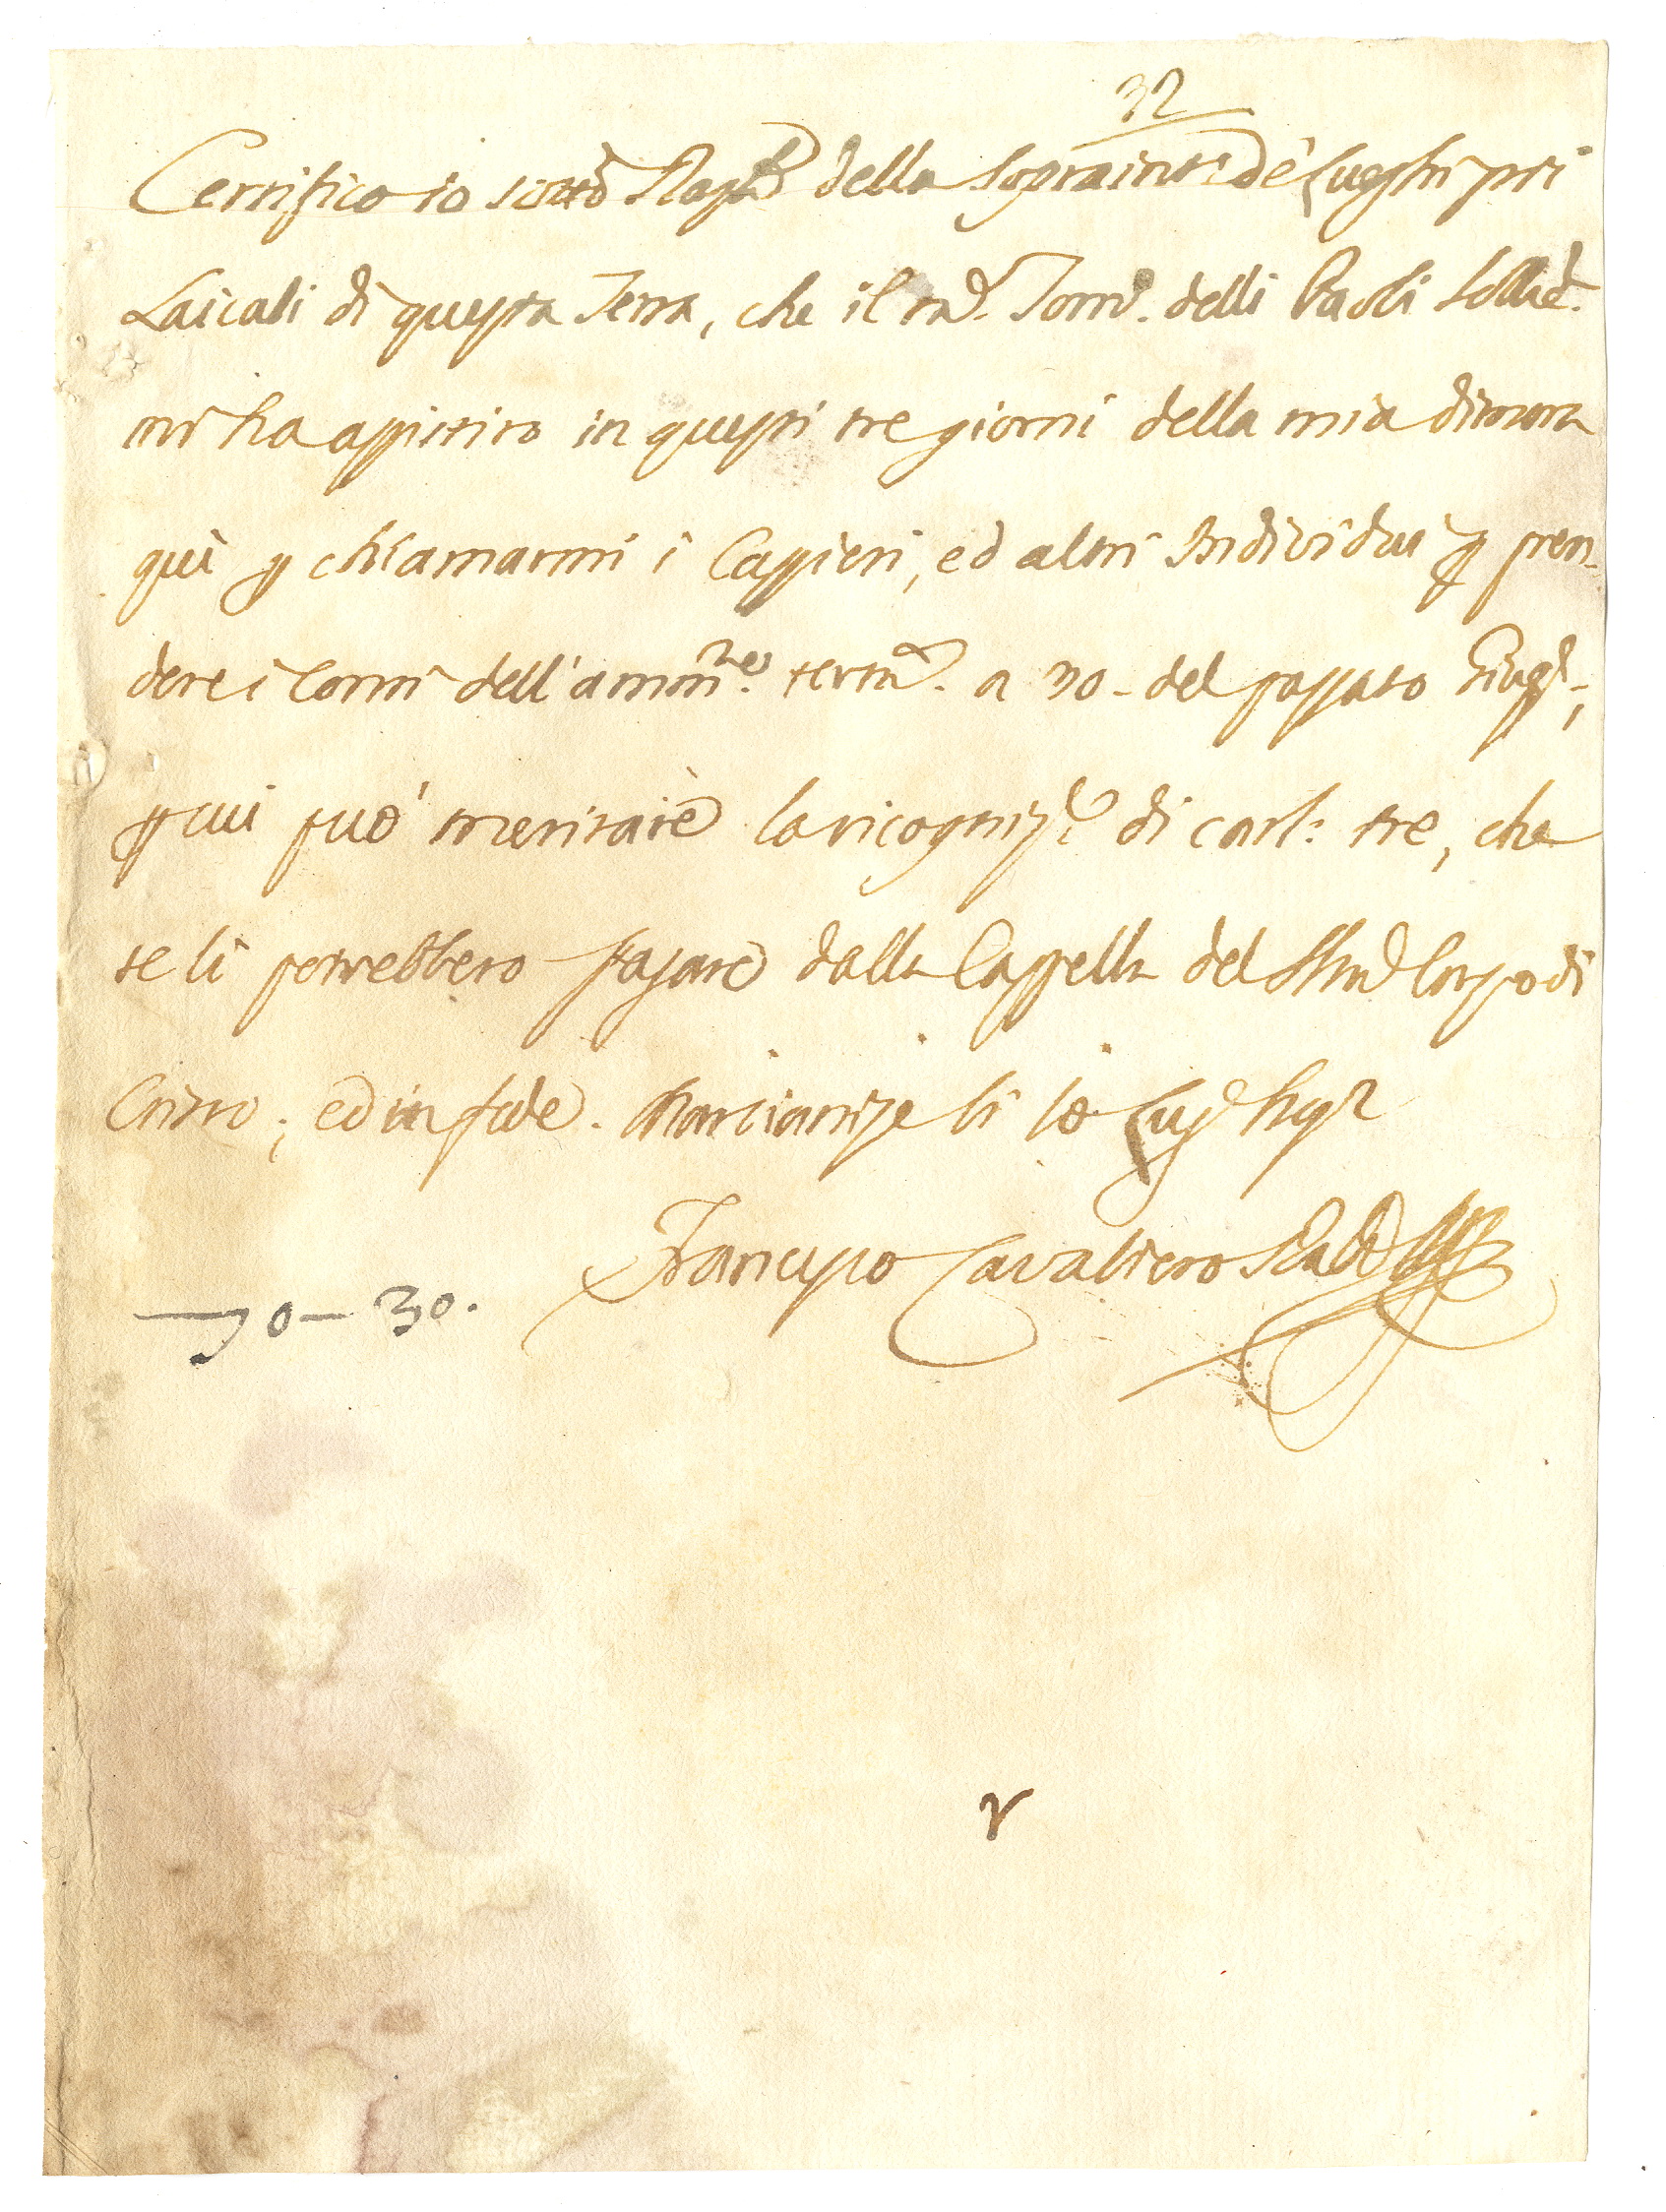 32
Certifico io sotto Raz.le della Sopraint.e de' Luoghi pii
Laicali di questa Terra, che il mag. Tom.o delli Paoli
mi ha assistito in questi tre giorni della mia dimora
quì p chiamarmi i Cassieri, ed altri Individui p pren-
dere i Conti dell'amm.ne term.a a 30 - del passato Giug.o,
p cui può meritare la ricogniz.e di carl: tre, che
se li potrebbero pagare dalla Cappella del SSmo Corpo di
Cristo; ed in fede. Marcianise li 10 Lug.o
Francesco Cavaliero
0 — 30.